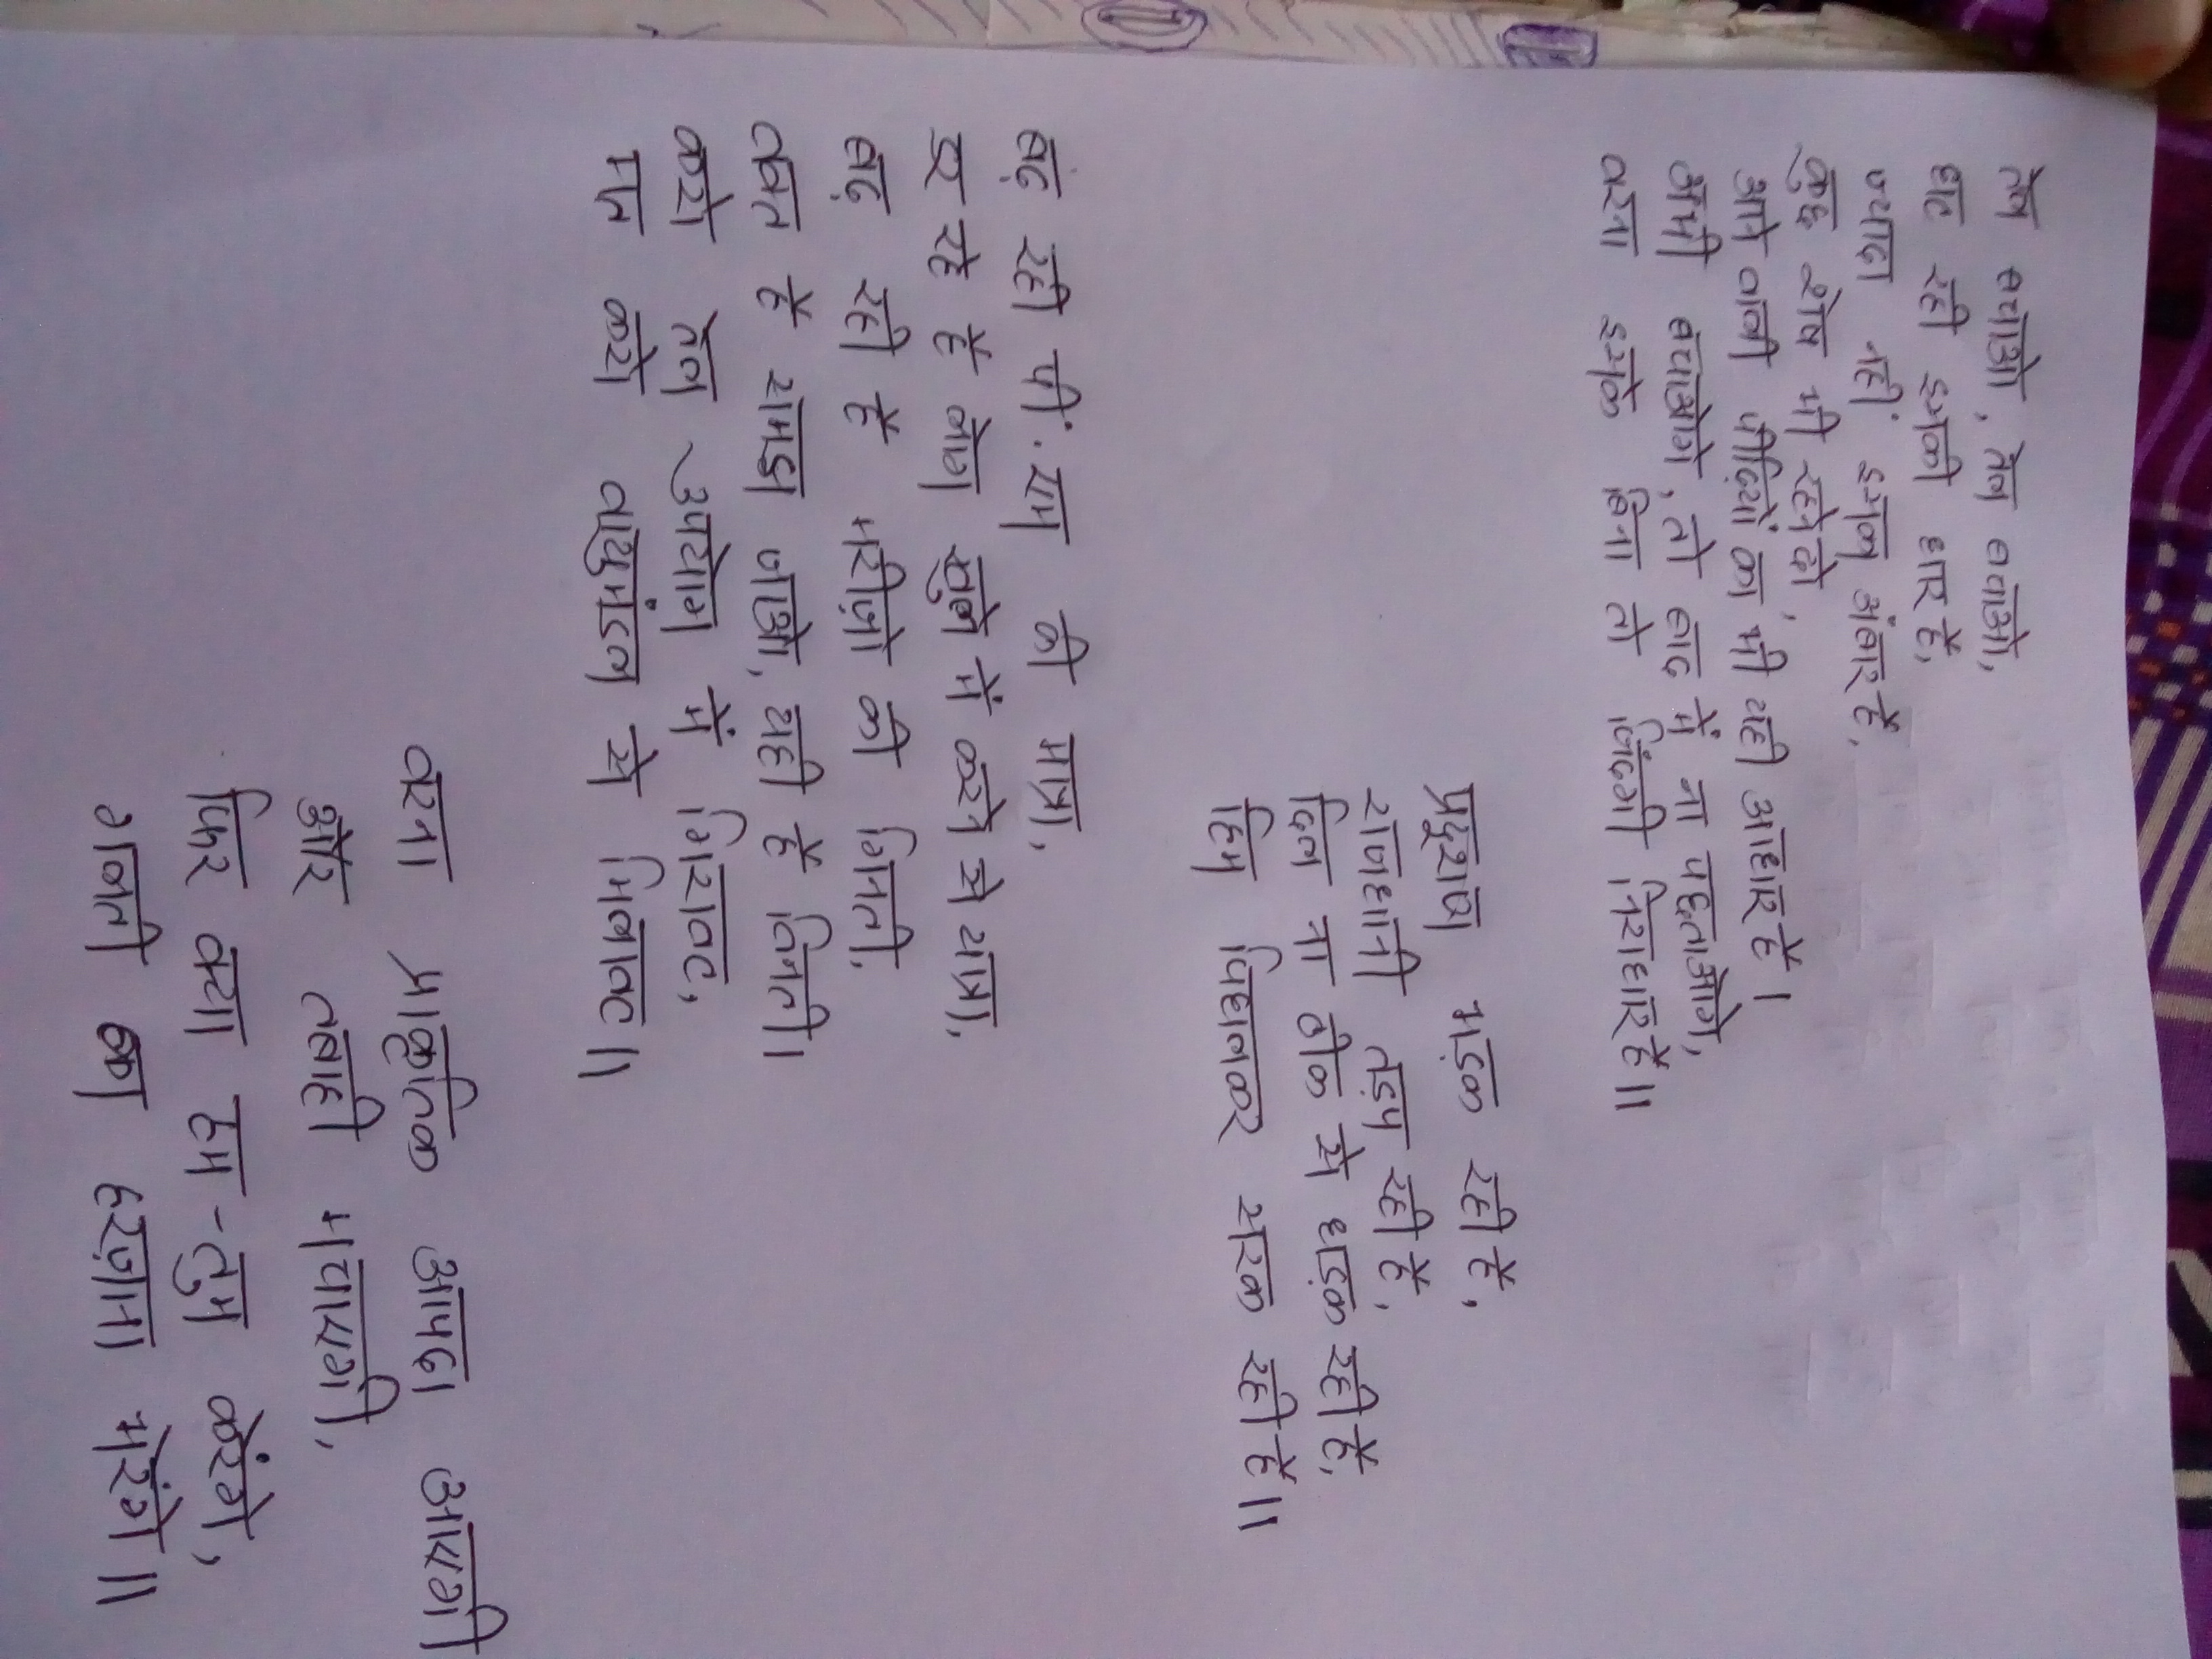 तेल बचाओ, तेल बचाओ,
घट रही इसकी धार है,
ज्यादा नहीं इसका अंबार है,
कुछ शेष भी रहने दो,
आने वाली पीढ़ियों का भी यही आधार है।
अभी बचाओगे, तो बाद में ना पछताओगे,
वरना इसके बिना तो जिंदगी निराधार है॥
प्रदूषण भड़क रही है,
राजधानी तड़प रही है,
दिल ना ठीक से धड़क रही है,
हिम पिघलकर सरक रही है॥
बढ़ रही पी. एम की मात्रा,
डर रहे है लोग खुले में करने से यात्रा,
बढ़ रही है मरीज़ो की गिनती,
वक्त है समझ जाओ, यही है विनती।
करो तेल उपयोग में गिरावट,
मत करो वायुमंडल से मिलावट॥
वरना प्राकृतिक आपदा आएगी
और तबाही मचाएगी,
फिर क्या हम-तुम करेंगे,
गलती का हरज़ाना भरेंगे॥